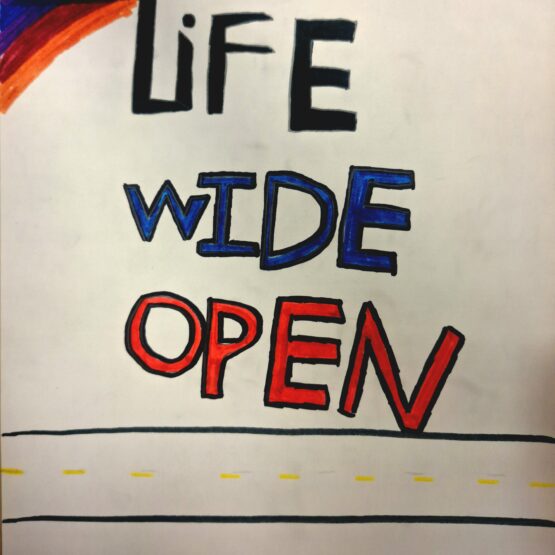 LiFE
WIDE
OPEN